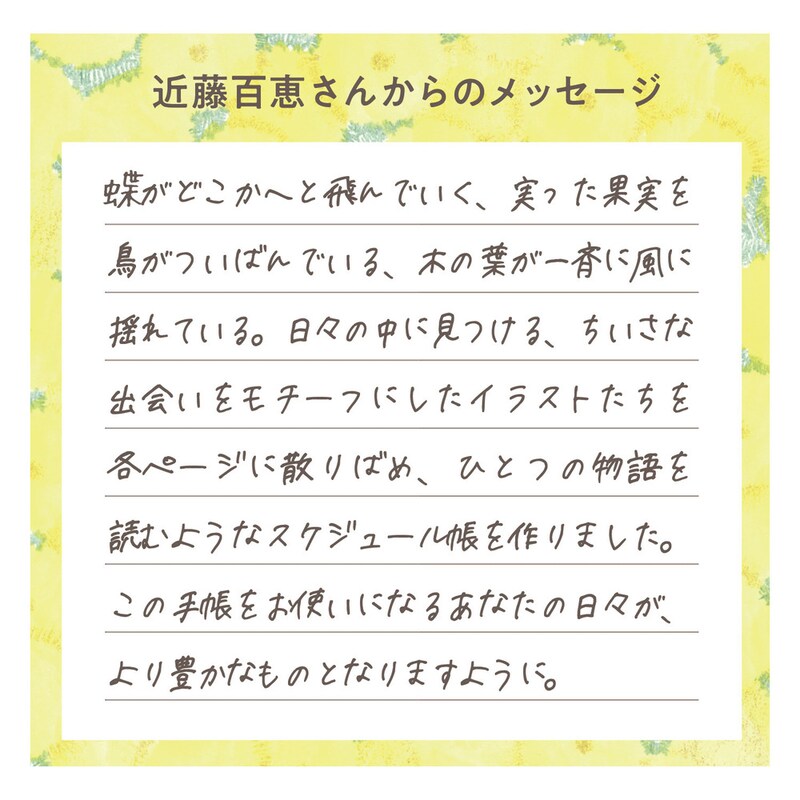 近藤百恵さんからのメッセージ
蝶がどこかへと飛んでいく、実った果実を
鳥がついばんでいる、木の葉が一斉に風に
揺れている。日々の中に見つける、ちいさな
出会いをモチーフにしたイラストたちを
各ページに散りばめ、ひとつの物語を
読むようなスケジュール帳を作りました。
この手帳をお使いになるあなたの日々が、
より豊かなものとなりますように。